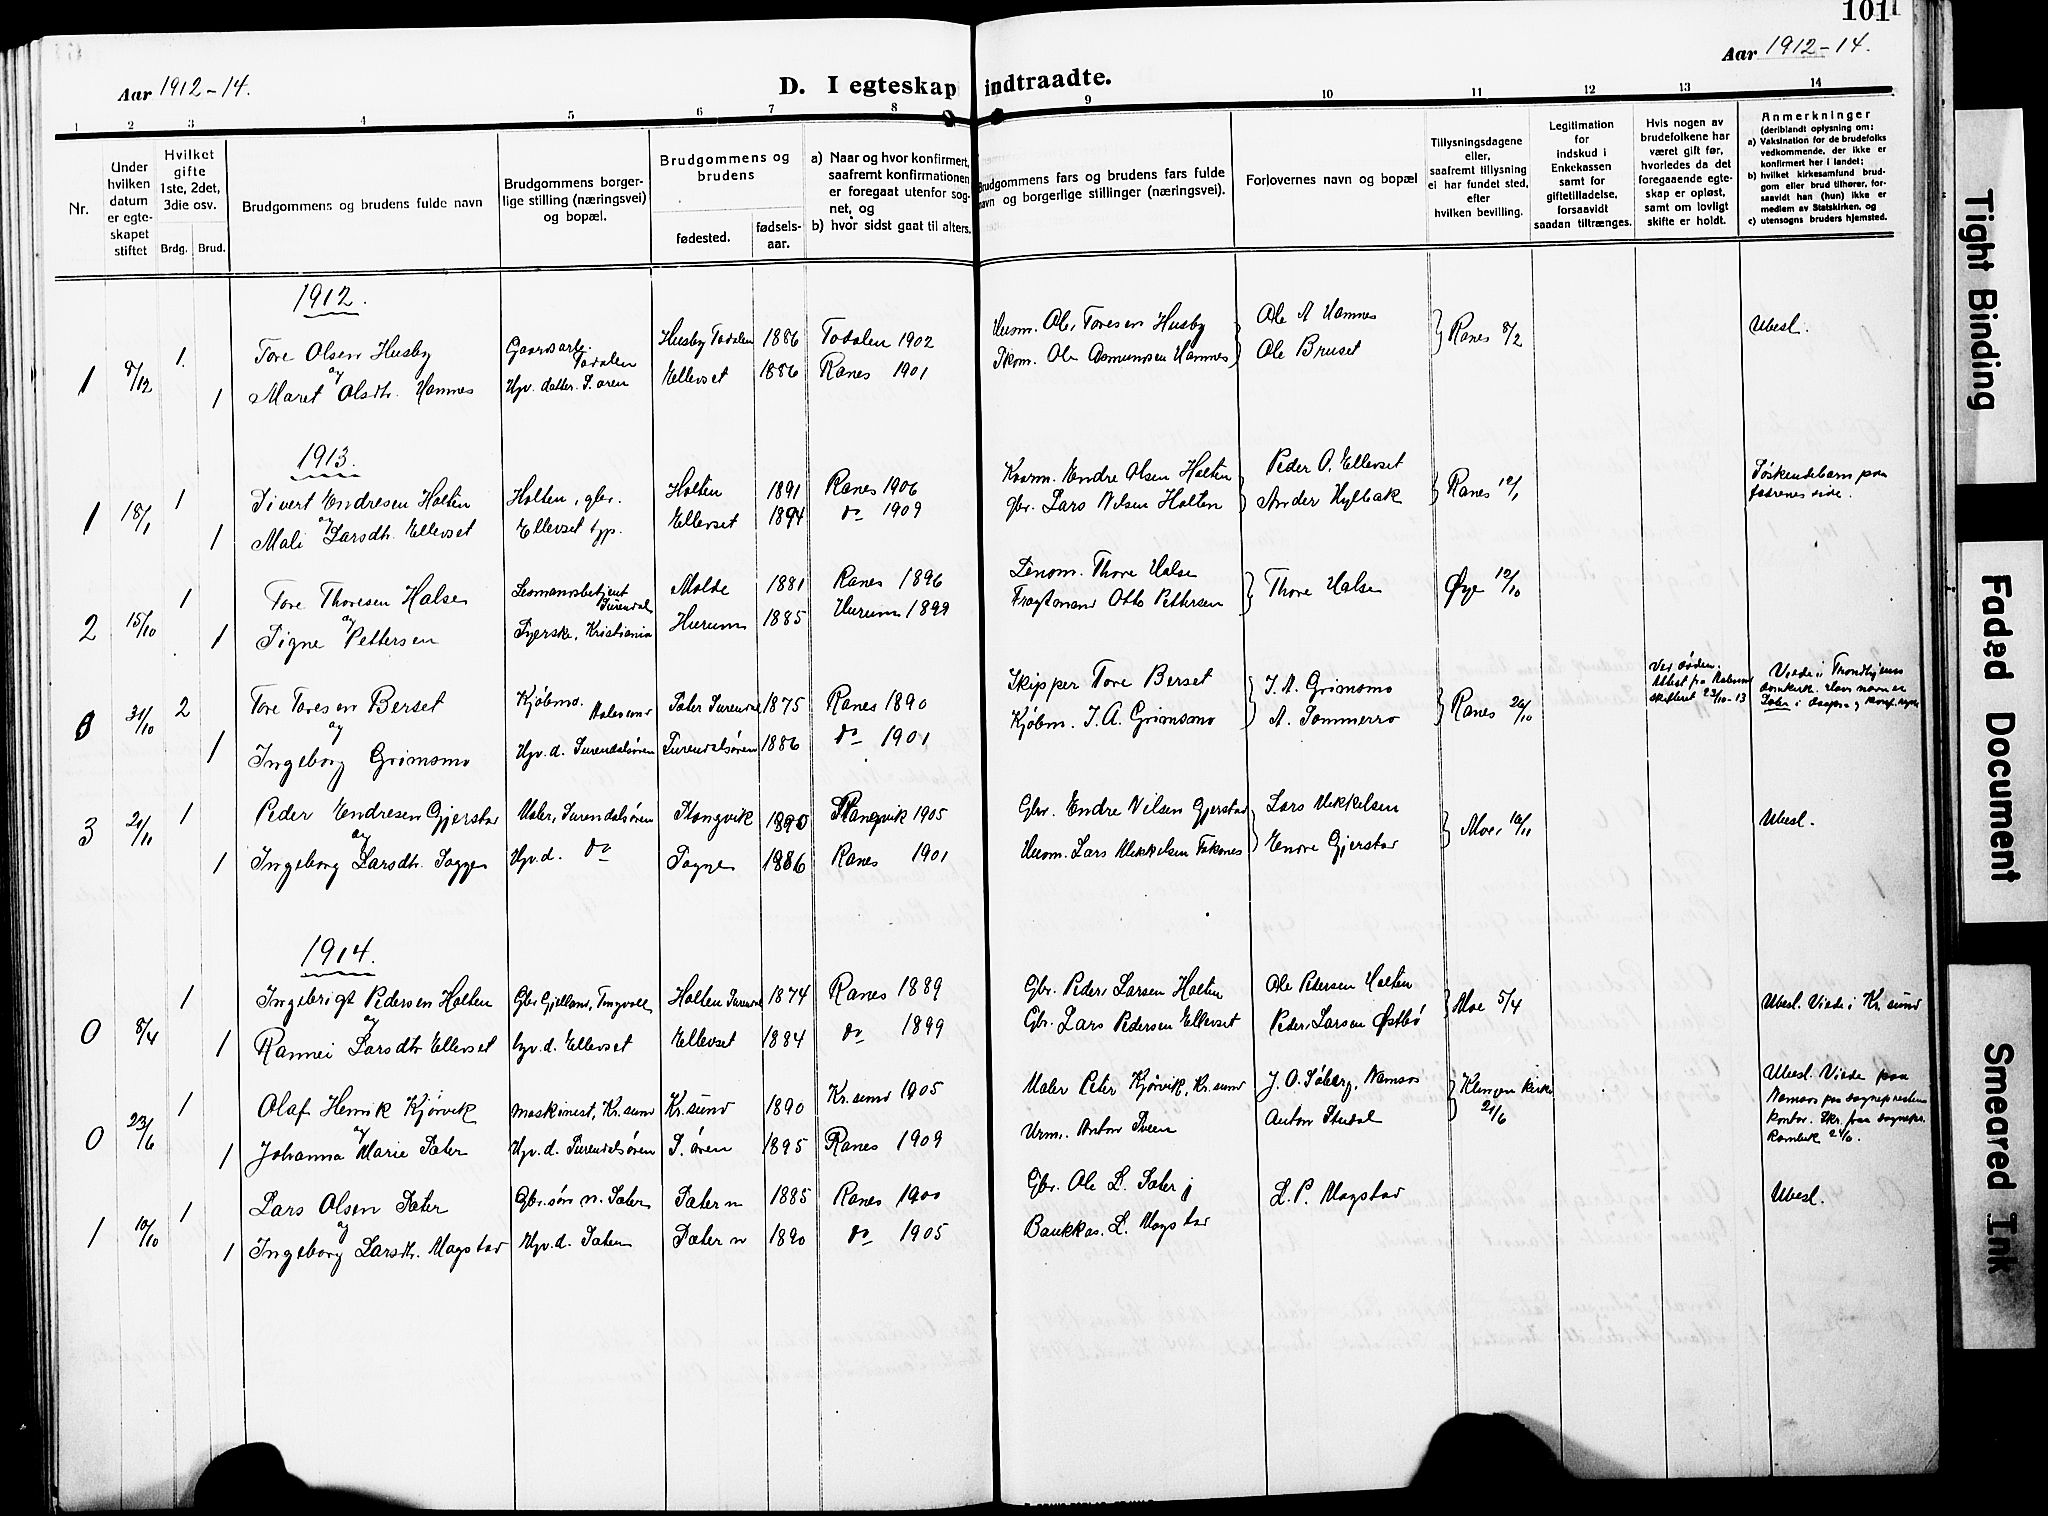 101
Aar 1912-14.
Aar 1912-14.
D. I egteskap indtraadte.
1 2 3 4 5 6 7 8 9 10 11 12 13 14
Nr.
Under hvilken datum er egteskapet stiftet
Hvilket gifte 1ste, 2det, 3die osv.
Brdg. Brud.
Brudgommens og brudens fulde navn
Brudgommens borgerlige stilling (næringsvei) og bopæl.
Brudgommens og brudens
fødested. fødselsaar.
a) Naar og hvor konfirmert, saafremt konfirmationen er foregaat utenfor sognet, og
b) hvor sidst gaat til alters.
Brudgommens fars og brudens fars fulde navn og borgerlige stillinger (næringsvei).
Forlovernes navn og bopæl
Tillysningsdagene eller, saafremt tillysning ei har fundet sted, efter hvilken bevilling.
Legitimation for indskud i Enkekassen samt for giftetilladelse, forsaavidt saadan tiltrænges.
Hvis nogen av brudefolkene har været gift før, hvorledes da det foregaaende egteskap er opløst, samt om lovligt skifte er holdt.
Anmerkninger
(deriblandt oplysning om:
a) Vaksination for de brudefolks vedkommende, der ikke er konfirmert her i landet;
b) hvilket kirkesamfund brudgom eller brud tilhører, forsaavidt han (hun) ikke er medlem av Statskirken, og
c) utensogns bruders hjemsted.
1912.
1. Tore Olsen Husby Gaardarb. Todalen Husby Todalen 1886 Todalen 1902 Husm. Ole Toresen Husby Ole A Hamnes Ranes 8/2 Ubesl.
1 9/12 og
1 Maret Olsdtr. Hamnes Hgv. datter. S. øren Ellevset 1886 Ranes 1901 Skom. Ole Asmundsen Hamnes Ole Bruset
1913.
1 18/1 1 Sivert Endresen Holten Holten, gbr. Holten 1891 Ranes 1906 Kaarm. Endre Olsen Holten Peder O. Ellevset Ranes 12/1 Søskendebarn paa fædrenes side.
og
1 Mali Larsdtr. Ellevset Ellevset 1894 do 1909 gbr. Lars Nilsen Holten Ander Hylbak
2 15/10 1 Tore Thoresen Halse Lensmandsbetjent Surendal Molde 1881 Ranes 1896 Lensm. Thore Halse Thore Halse Øye 12/10
og
1 Signe Pettersen Syerske, Kristiania Hurum 1885 Hurum 1899 Fragtmand Otto Pettersen
0 31/10 2 Tore Toresen Berset Kjøbmd. Aalesund Sæter Surendal 1875 Ranes 1890 Skipper Tore Berset I. A. Grimsmo Ranes 26/10 Ved døden. Attest fra Aalesund skifteret 23/10-13 Viede i Trondhjems domkirke.
og
1 Ingeborg Grimsmo Hgv. d. Surendalsøren Surendalsøren 1886 do 1901 Kjøbm. I. A. Grimsmo A. Sommerro
3 21/11 1 Peder Endresen Gjerstad Maler, Surendalsøren Stangvik 1890 Stangvik 1905 Gbr. Endre Nilsen Gjerstad Lars Mikkelsen Moe 16/11 Ubesl.
og
1 Ingeborg Larsdtr. Sogge Hgv. d. do Sogge 1886 Ranes 1901 Husm. Lars Mikkelsen Endre Gjerstad
1914.
1 Ingebrigt Pedersen Holten Gbr. Gjelland, Tingvoll Holten Surendal 1874 Ranes 1889 Gbr. Peder Larsen Holten Ole Pedersen Holten Moe 5/4 Ubesl. Viede i Kr.sund
0 8/4 og
1 Rannei Larsdtr Ellevset hgv. d. Ellevset Ellevset 1884 do 1899 Gbr. Lars Pedersen Ellevset Peder Larsen Østbø
1 Olaf Henrik Kjørvik maskinist, Kr.sund Kr.sund 1890 Kr.sund 1905 Maler Peter Kjørvik, Kr.sund J. O. Søberg, Namsos Klingen kirke 21/6 Ubesl. Viede paa Namsos paa sogneprestens kontor.
0 23/6 og
1 Johanna Marie Sæter Hgv. d. Surendalsøren S. øren 1895 Ranes 1909 Urm. Anton Sveen Anton
1 10/10 1 Lars Olsen Sæter Gbr. søn n. Sæter Sæter n 1885 Ranes 1900 Gbr. Ole L. Sæter L. P. Mogstad Ubesl.
og
1 Ingeborg Larsdtr. Mogstad Hgv. d. Sæter Sæter n 1890 do 1905 Bankkas. L. Mogstad
Tight Binding
Faded Document
Smeared Ink